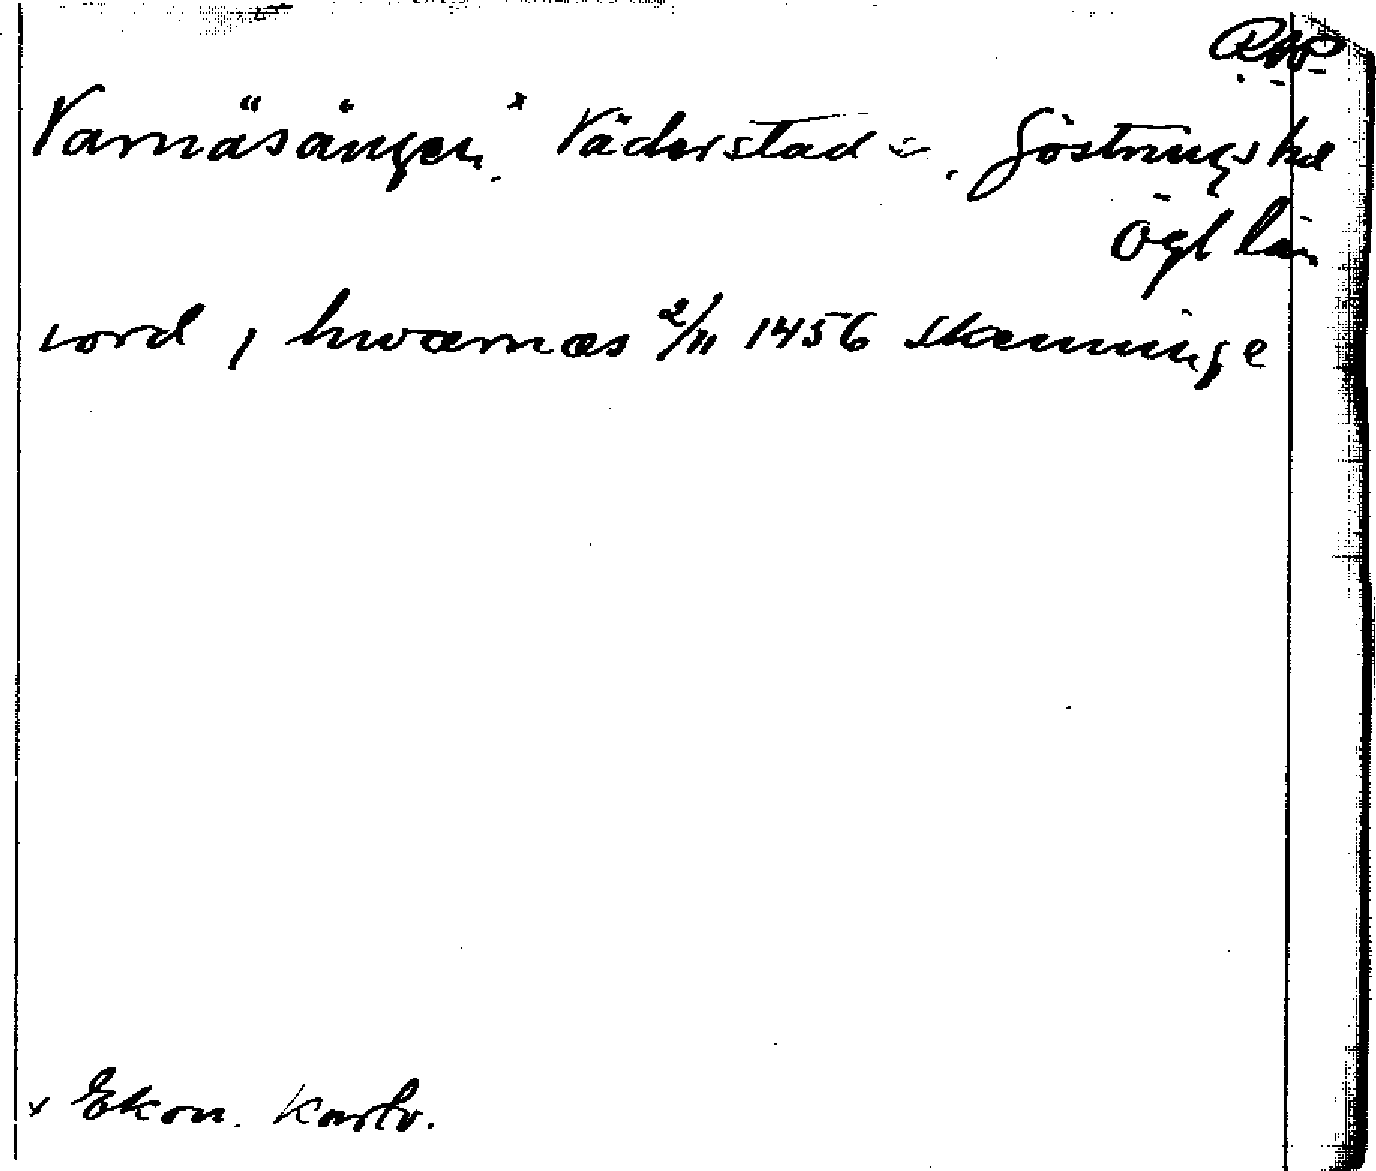 RAP
Varnäsängen.ˣ Väderstad s:n. Göstrings hd
Ögl län
iord j hwærnæs 2/11 1456 Skenninge
x Ekon. Kartv.